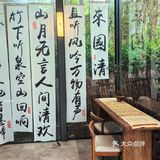 來國清
且听风吟万物有声
山月无言人间清欢
竹下听泉空山回响
大众点评